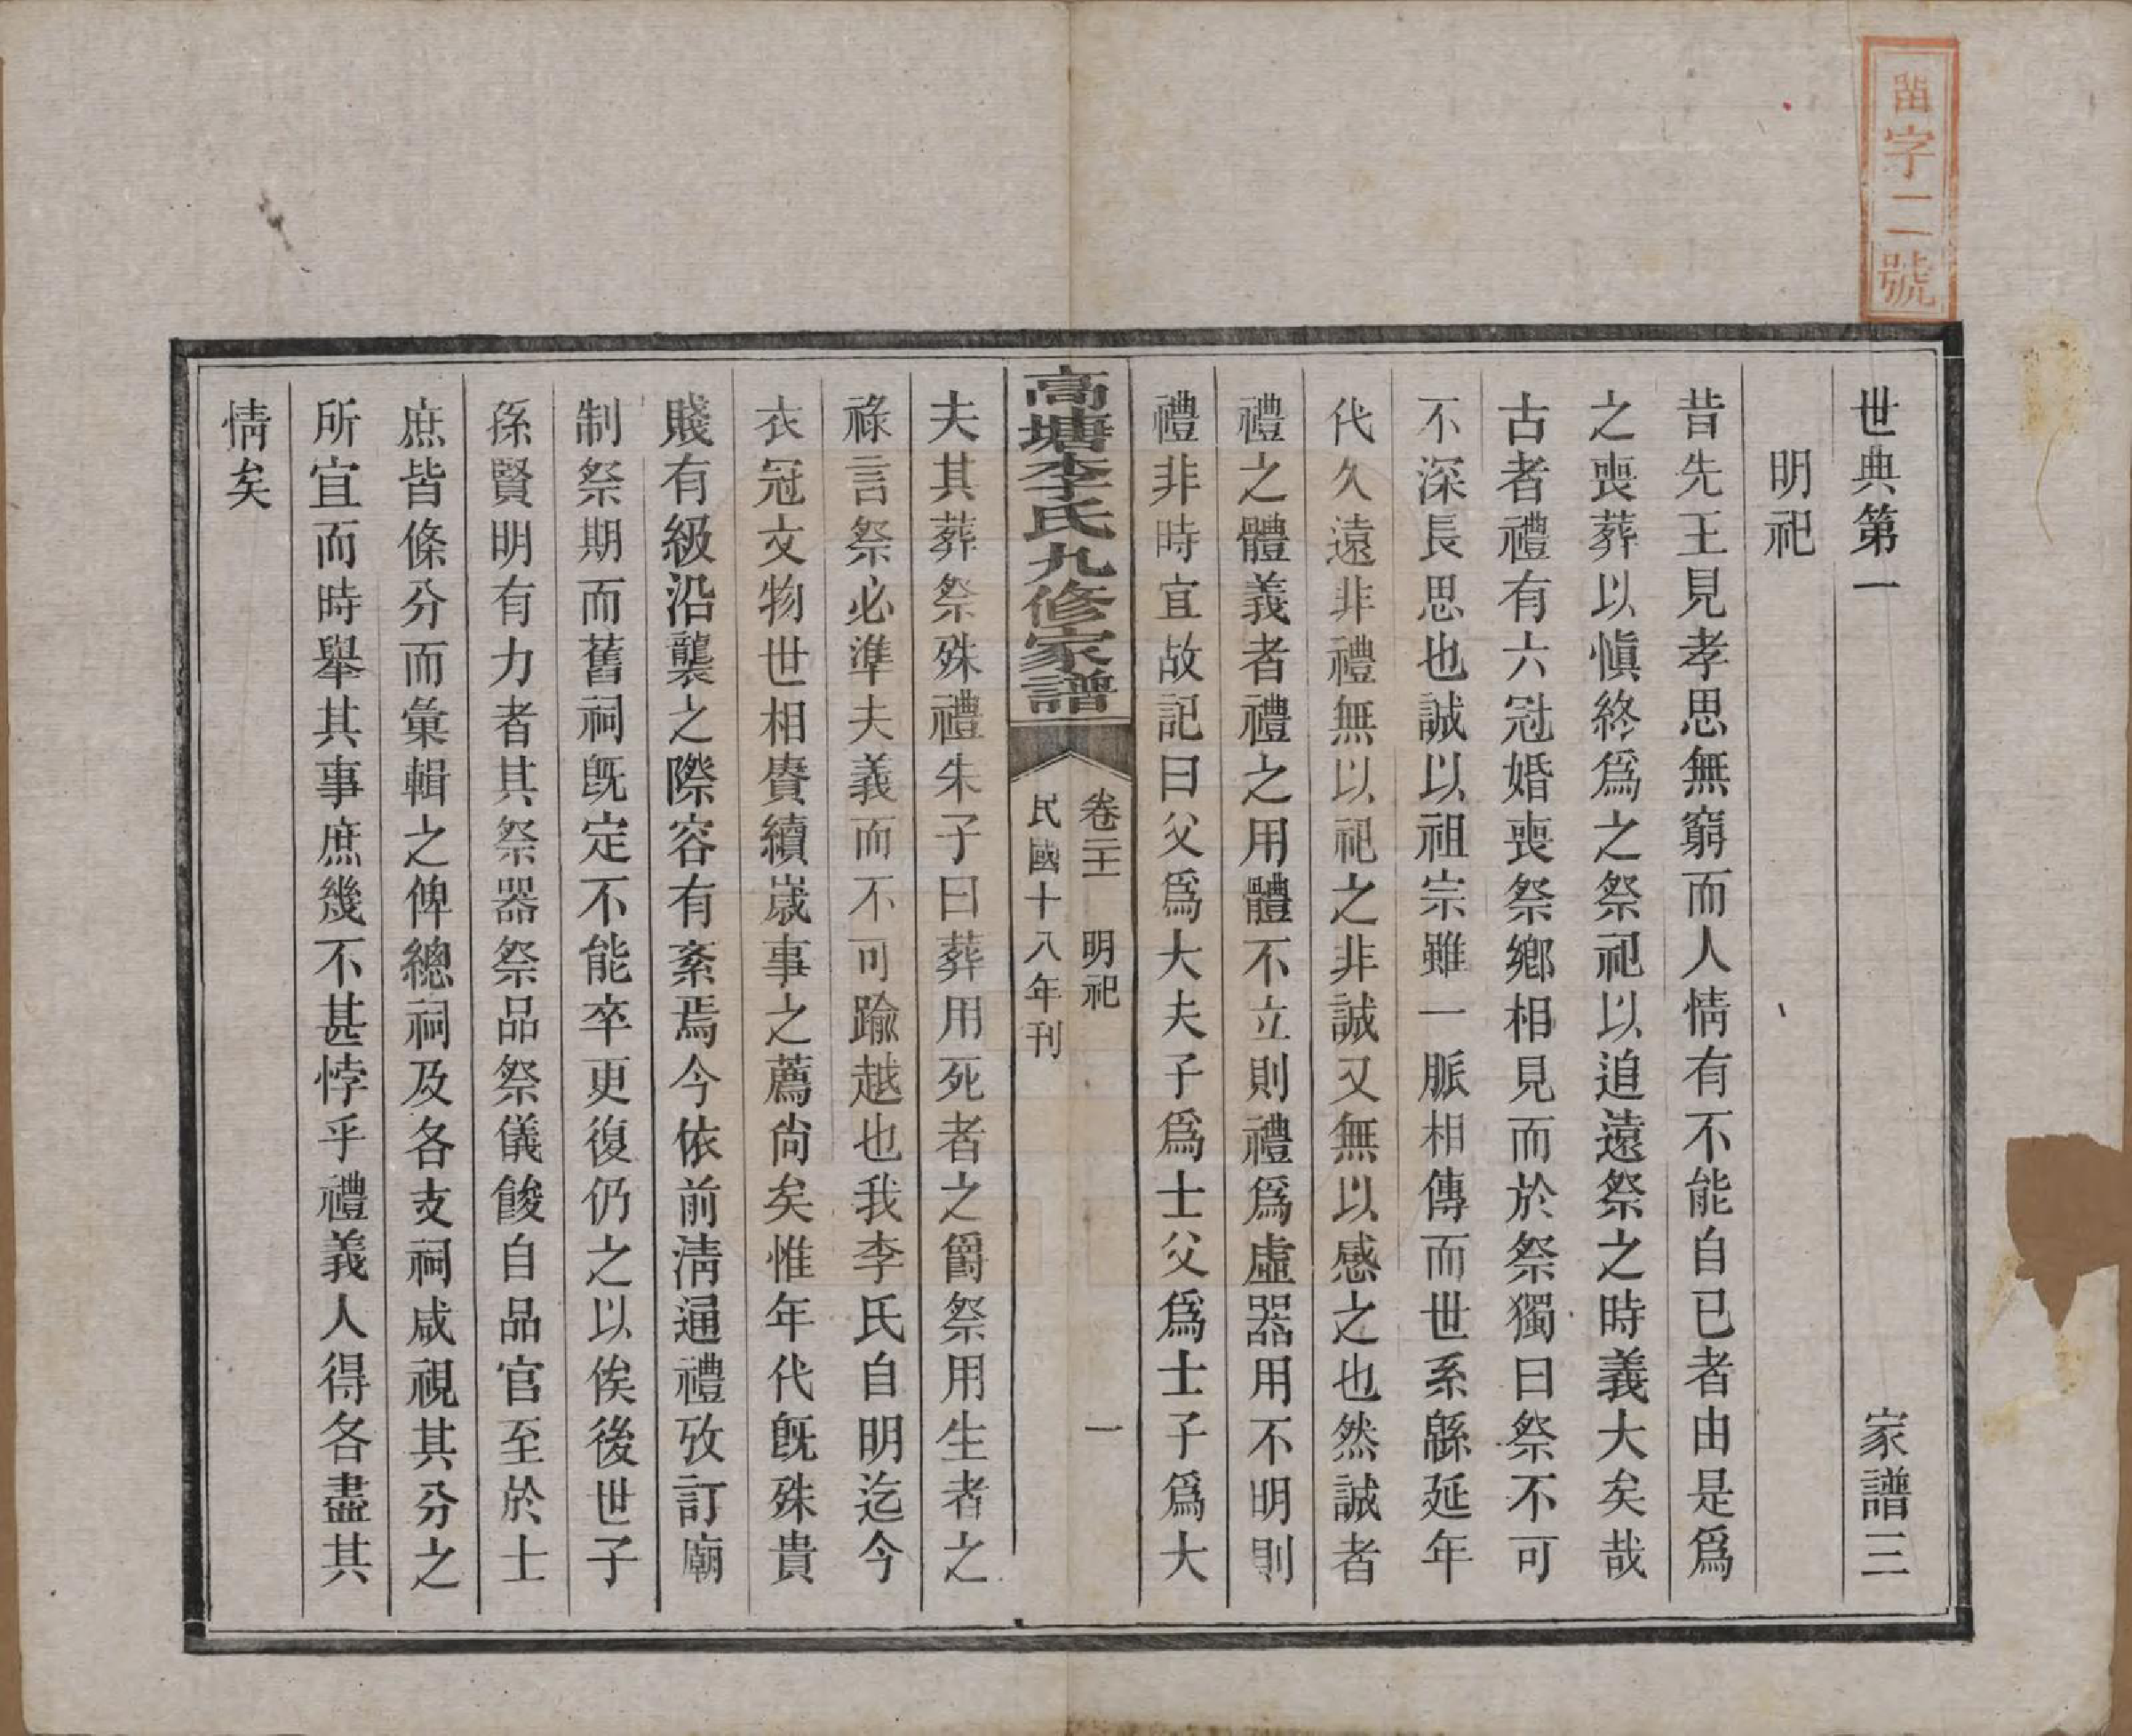 畱字二號
世典第一　家譜三
明祀
昔先王見孝思無窮而人情有不能自已者由是爲
之喪葬以愼終爲之祭祀以追遠祭之時義大矣哉
古者禮有六冠婚喪祭鄕相見而於祭獨曰祭不可
不深長思也誠以祖宗雖一脈相傳而世系緜延年
代久遠非禮無以祀之非誠又無以感之也然誠者
禮之體義者禮之用體不立則禮爲虛器用不明則
禮非時宜故記曰父爲大夫子爲士父爲士子爲大
高塘李氏九修家譜
卷二十一　明祀　一
民國十八年刊
夫其葬祭殊禮朱子曰葬用死者之爵祭用生者之
祿言祭必準夫義而不可踰越也我李氏自明迄今
衣冠文物世相賡續歲事之薦尙矣惟年代旣殊貴
賤有級沿襲之際容有紊焉今依前淸通禮攷訂廟
制祭期而舊祠旣定不能卒更復仍之以俟後世子
孫賢明有力者其祭器祭品祭儀餕自品官至於士
庶皆條分而彙輯之俾總祠及各支祠咸視其分之
所宜而時舉其事庶幾不甚悖乎禮義人得各盡其
情矣